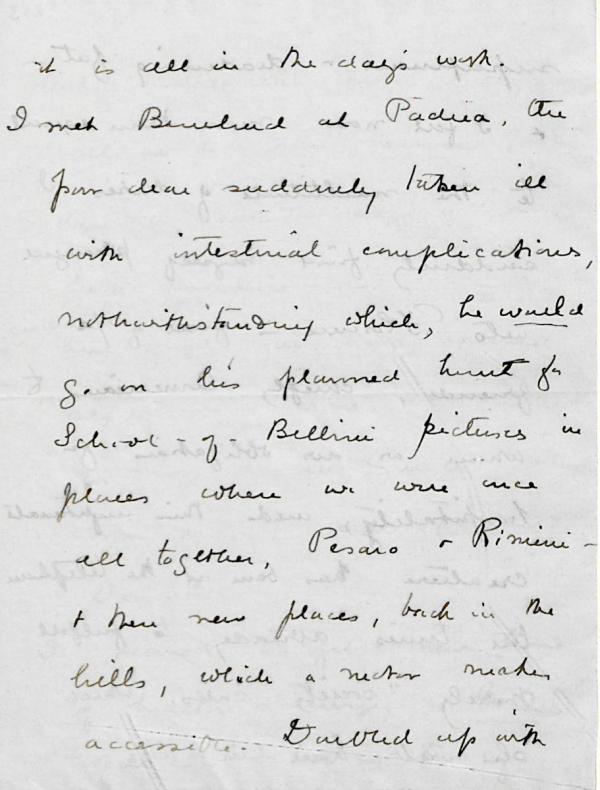 it is all in the day's work.
I met Bernhard at Padua, the
poor dear suddenly taken ill
with intestinal complications,
nothwithstanding which, he would
go on his planned hunt for
School-of-Bellini pictures in
places where we were once
all together, Pesaro & Rimini -
& then new places, back in the
hills, which a motor makes
accessible. Doubled up with